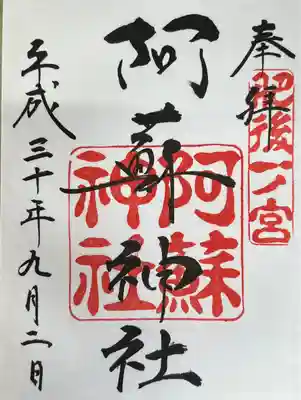 奉拝
肥後一ノ宮
阿蘇神社
阿蘇神社
平成三十年九月二日